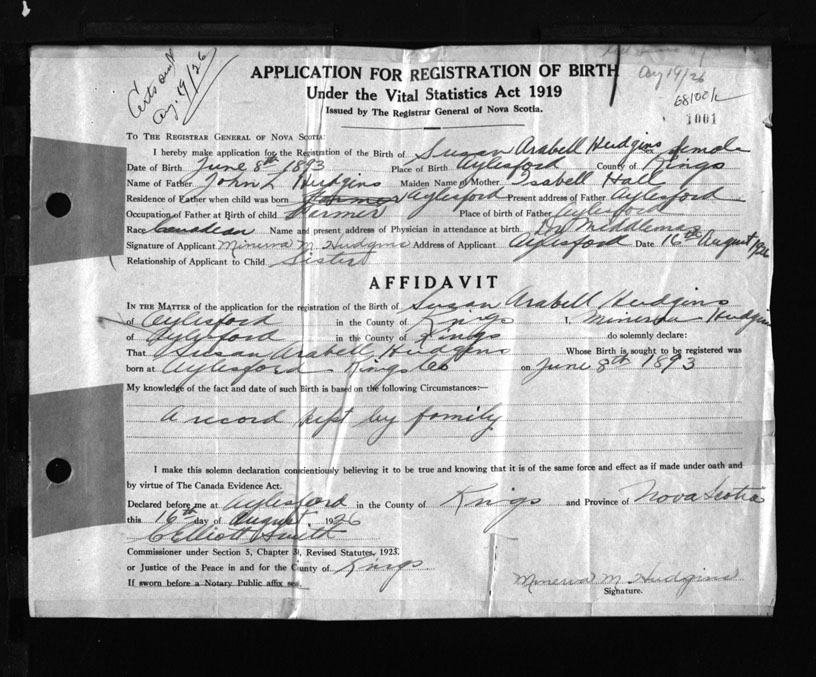 Certs sent
Aug. 19/26
Aug 19/26
1001
APPLICATION FOR REGISTRATION OF BIRTH
Under the Vital Statistics Act 1919
Issued by The Registrar General of Nova Scotia.
TO THE REGISTRAR GENERAL OF NOVA SCOTIA:
I hereby make application for the Registration of the Birth of Susan Arabell Hudgins female
Date of Birth June 8th 1893 Place of Birth Aylesford County of Kings
Name of Father John L Hudgins Maiden Name of Mother Isabell Hall
Residence of Father when child was born Aylesford Present address of Father Aylesford
Occupation of Father at Birth of child Farmer Place of birth of Father Aylesford
Race Canadian Name and present address of Physician in attendance at birth Dr Middlemas
Signature of Applicant Minerva M. Hudgins Address of Applicant Aylesford Date 16th August 1926
Relationship of Applicant to Child Sister
AFFIDAVIT
IN THE MATTER of the application for the registration of the Birth of Susan Arabell Hudgins
of Aylesford in the County of Kings I, Minerva Hudgins
of Aylesford in the County of Kings do solemnly declare:
That Susan Arabell Hudgins Whose Birth is sought to be registered was
born at Aylesford Kings Co on June 8th 1893
My knowledge of the fact and date of such Birth is based on the following Circumstances:—
A record kept by family
I make this solemn declaration conscientiously believing it to be true and knowing that it is of the same force and effect as if made under oath and
by virtue of The Canada Evidence Act.
Declared before me at Aylesford in the County of Kings and Province of Nova Scotia
this 16th day of August 1926
C Elliott Smith
Commissioner under Section 5, Chapter 31, Revised Statutes, 1923.
or Justice of the Peace in and for the County of Kings
If sworn before a Notary Public affix seal.
Minerva M Hudgins
Signature.